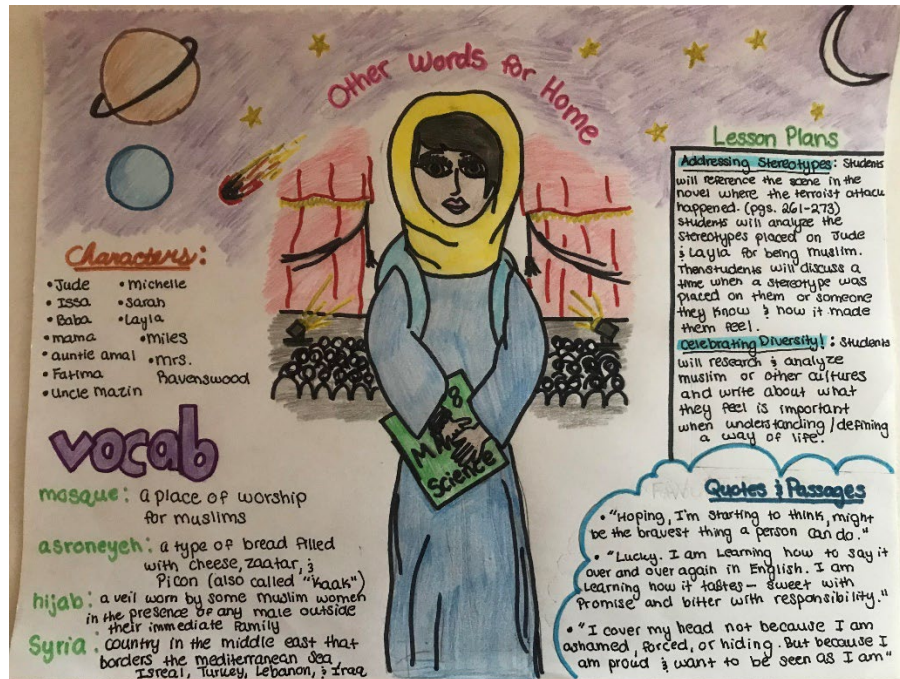 Other Words for Home
Characters:
• Jude
• Issa
• Baba
• mama
• auntie amal
• Fatima
• uncle mazin
• Michelle
• Sarah
• Layla
• miles
• mrs.
Ravenswood
vocab
mosque: a place of worship
for muslims
asroneyeh: a type of bread filled
with cheese, zaatar, &
Picon (also called "kaak")
hijab: a veil worn by some muslim women
in the presence of any male outside
their immediate family
Syria: country in the middle east that
borders the mediterranean sea
Isreal, Turkey, Lebanon, & Iraq
8
Science
Lesson Plans
Addressing Stereotypes: Students
will reference the scene in the
novel where the terroist attack
happened. (pgs. 261-273)
students will analyze the
stereotypes placed on Jude
& Layla for being muslim.
Then students will discuss a
time when a stereotype was
placed on them or someone
they know & how it made
them feel.
Celebrating Diversity! : Students
will research & analyze
muslim or other cultures
and write about what
they feel is important
when understanding/defining
a way of life.
Quotes & Passages
• "Hoping, I'm starting to think, might
be the bravest thing a person can do."
• "Lucky. I am learning how to say it
over and over again in English. I am
learning how it tastes— sweet with
Promise and bitter with responsibility."
• "I cover my head not because I am
ashamed, forced, or hiding. But because I
am proud & want to be seen as I am"